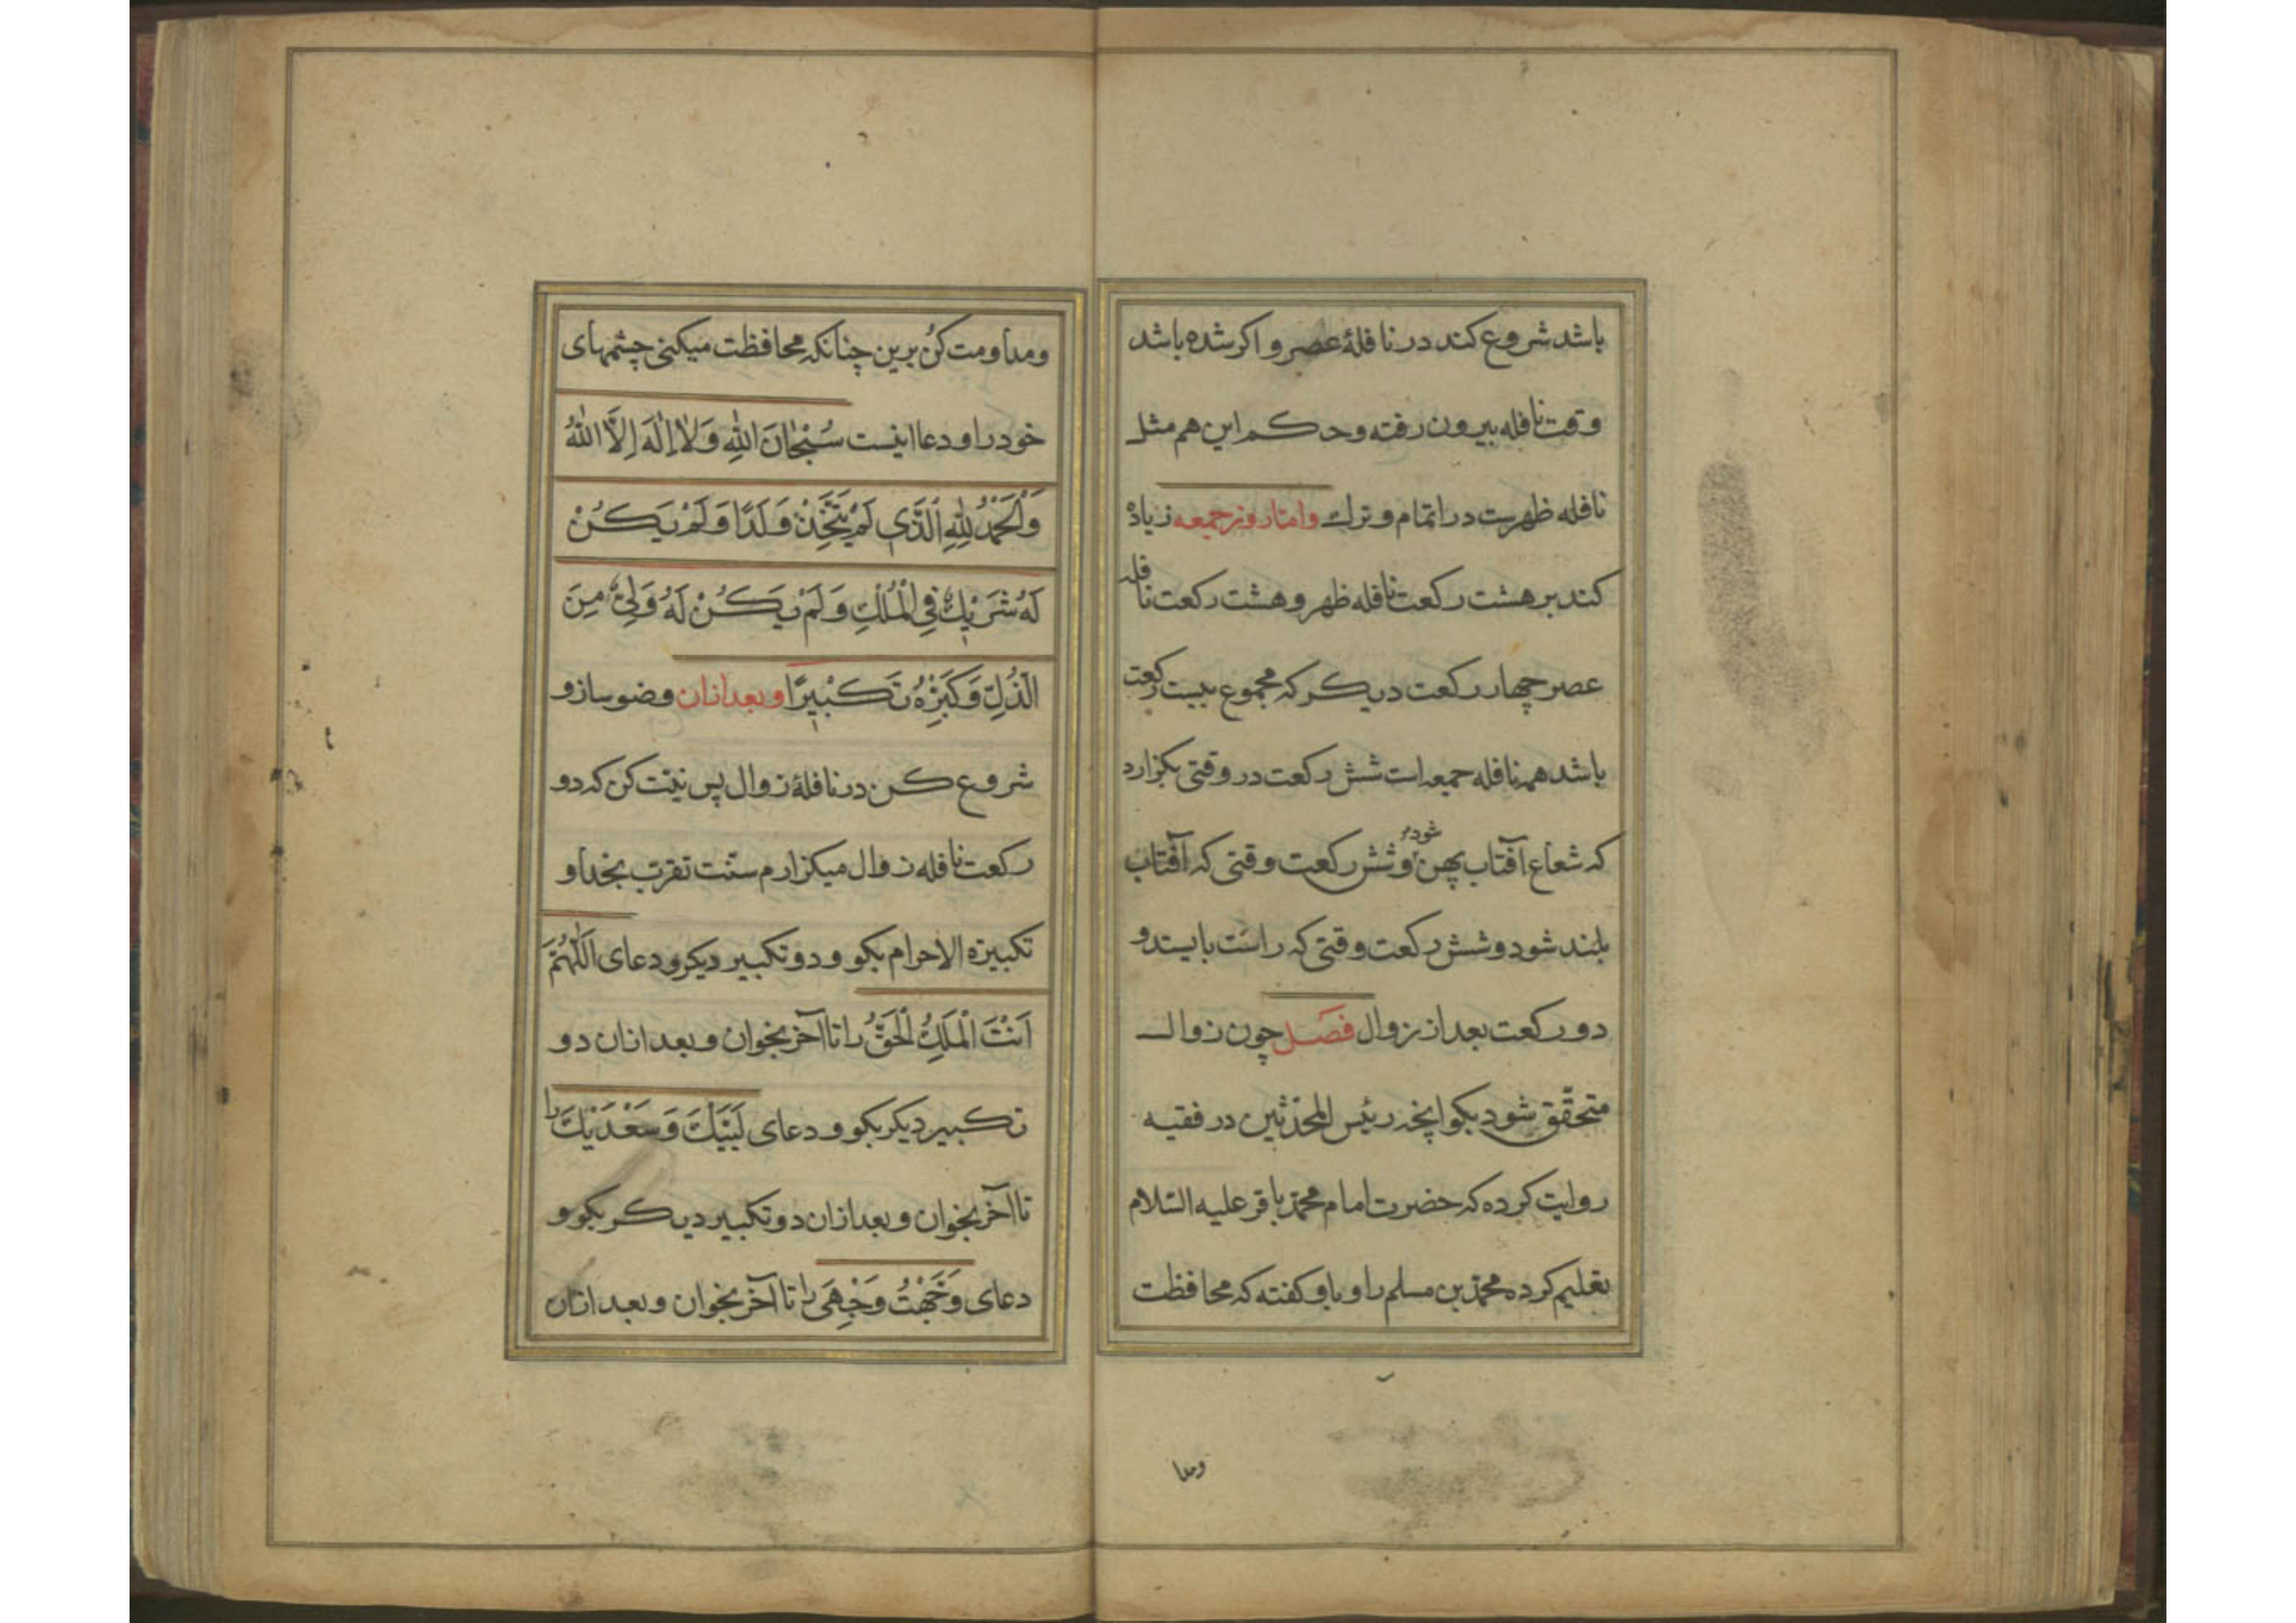 باشد شروع کند در نافلهٔ عصر و اکر شده باشد
وقت نافله بیرون رفته و حکم این هم مثل
نافله ظهرست در اتمام و ترك و امّا روز جمعه زیاده
کند بر هشت رکعت نافله ظهر و هشت رکعت نافله
عصر چهار رکعت دیکر که مجموع بیست رکعت
باشد همه نافله جمعه است شش رکعت در وقتی بکزارد
که شعاع آفتاب پهن شود و شش رکعت وقتی که آفتاب
بلند شود و شش رکعت وقتی که راست بایستد و
دو رکعت بعد از زوال فصل چون زوال
متحقّق شود بکو اپخه رئیس المحدّثین در فقیه
روایت کرده که حضرت امام محمّد باقر علیه السّلام
تعلیم کرده محمّد بن مسلم را و باو کفته که محافظت
ومدا
ومداومت کُن برین چنانکه محافظت میکنی چشمهای
خود را و دعا اینست سُبْحَانَ اللهِ وَلَا إِلَهَ إِلَّا اللهُ
وَالْحَمْدُ لِلّهِ الَّذِی لَمْ یَتَّخِذْ وَلَدًا وَلَمْ یَکُنْ
لَهُ شَرِیكٌ فِی الْمُلْكِ وَلَمْ یَکُنْ لَهُ وَلِیٌّ مِنَ
الذُّلِّ وَکَبِّرْهُ تَکْبِیرًا و بعد ازان وضو ساز و
شروع کن در نافلهٔ زوال پس نیّت کن که دو
رکعت نافله زوال میکزارم سنّت تقرّب بخدا و
تکبیرة الاحرام بکو و دو تکبیر دیکر و دعای اَللّهُمَّ
اَنْتَ الْمَلِكُ الْحَقُّ را تا آخر بخوان و بعد ازان دو
تکبیر دیکر بکو و دعای لَبَّیْكَ وَسَعْدَیْكَ را
تا آخر بخوان و بعد ازان دو تکبیر دیکر بکو و
دعای وَجَّهْتُ وَجْهِیَ را تا آخر بخوان و بعد ازان